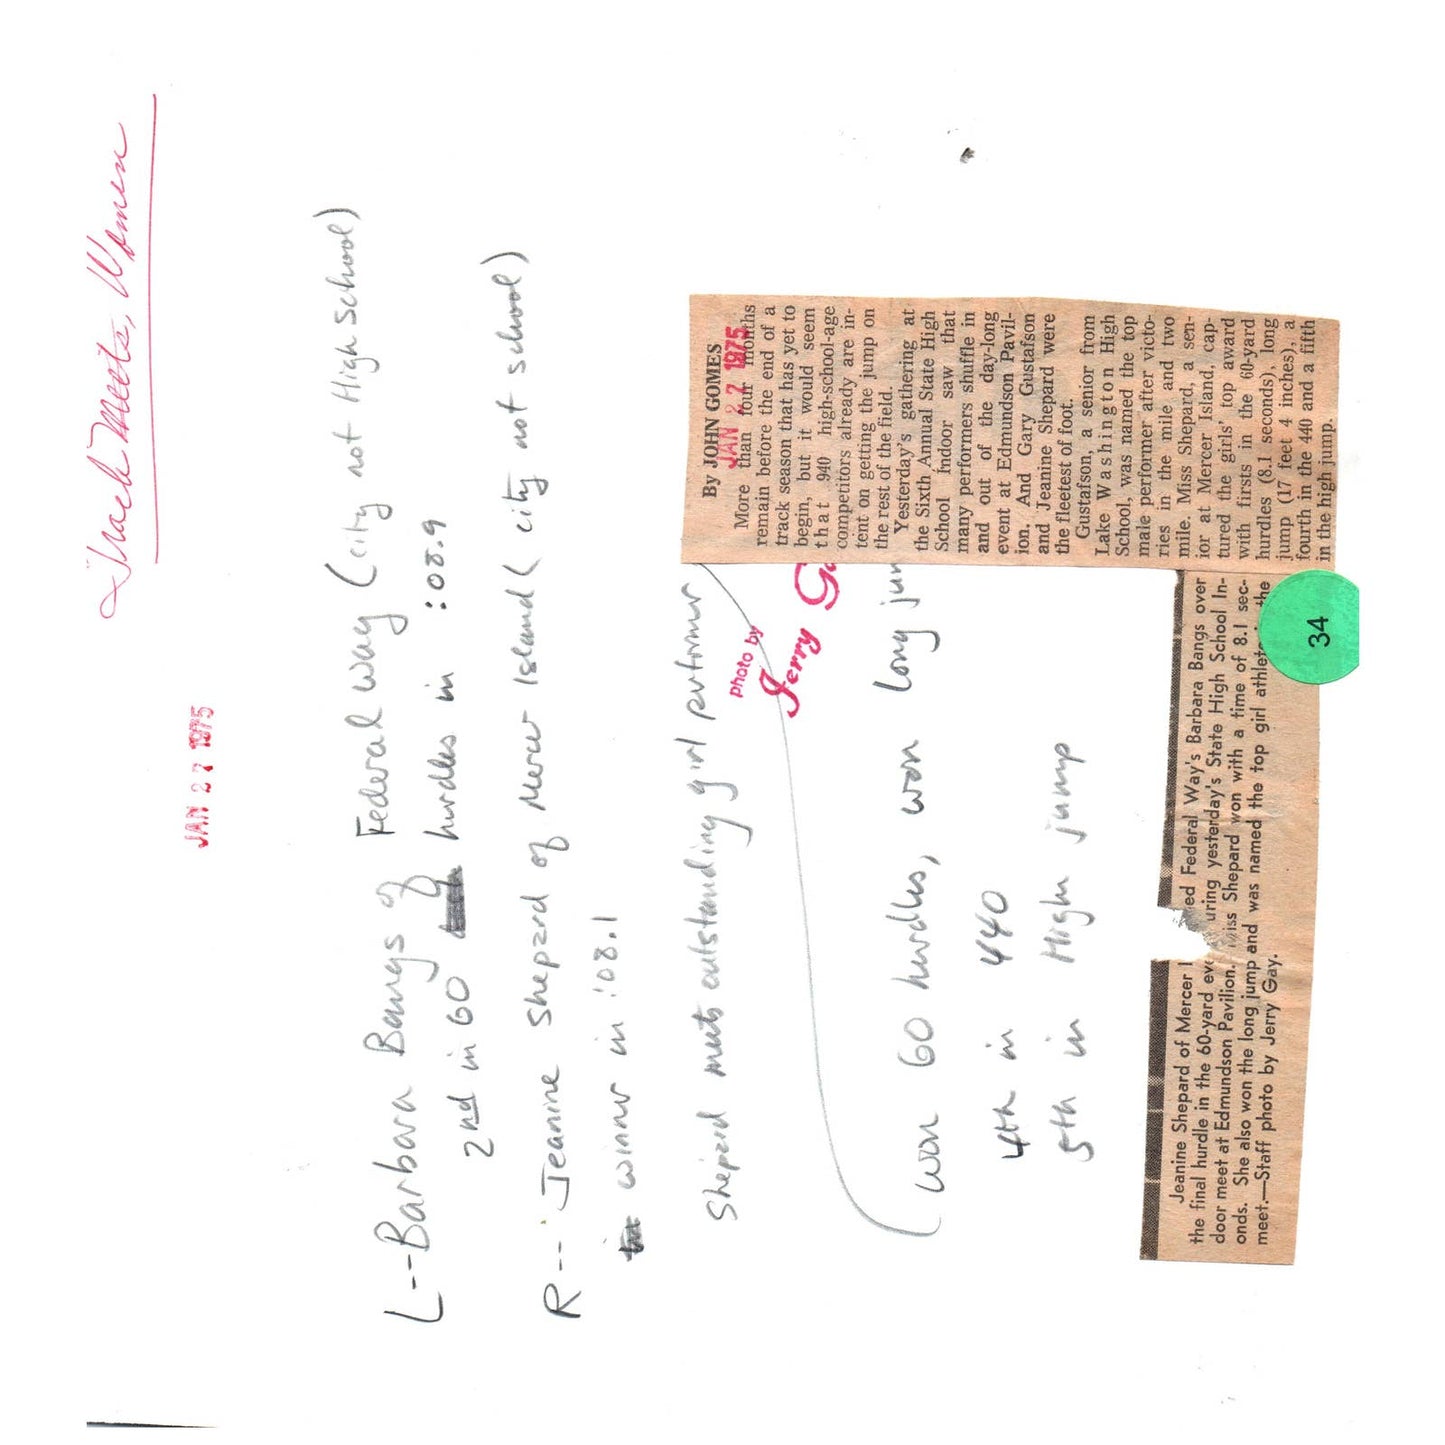 Track Meets, Women
JAN 27 1975
L -- Barbara Bangs of Federal Way (city not High School)
2nd in 60 hurdles in :08.9
R -- Jeanine Shepard of Mercer Island (city not school)
winner in :08.1
Shepard meets outstanding girl performer
photo by
Jerry Ga
won 60 hurdles, won long jum
4th in 440
5th in High jump
By JOHN GOMES
JAN 27 1975
More than four months
remain before the end of a
track season that has yet to
begin, but it would seem
that 940 high-school-age
competitors already are in-
tent on getting the jump on
the rest of the field.
Yesterday's gathering at
the Sixth Annual State High
School Indoor saw that
many performers shuffle in
and out of the day-long
event at Edmundson Pavil-
ion. And Gary Gustafson
and Jeanine Shepard were
the fleetest of foot.
Gustafson, a senior from
Lake Washington High
School, was named the top
male performer after victo-
ries in the mile and two
mile. Miss Shepard, a sen-
ior at Mercer Island, cap-
tured the girls' top award
with firsts in the 60-yard
hurdles (8.1 seconds), long
jump (17 feet 4 inches), a
fourth in the 440 and a fifth
in the high jump.
Jeanine Shepard of Mercer I ed Federal Way's Barbara Bangs over
the final hurdle in the 60-yard eve uring yesterday's State High School In-
door meet at Edmundson Pavilion. Miss Shepard won with a time of 8.1 sec-
onds. She also won the long jump and was named the top girl athlete in the
meet.—Staff photo by Jerry Gay.
34